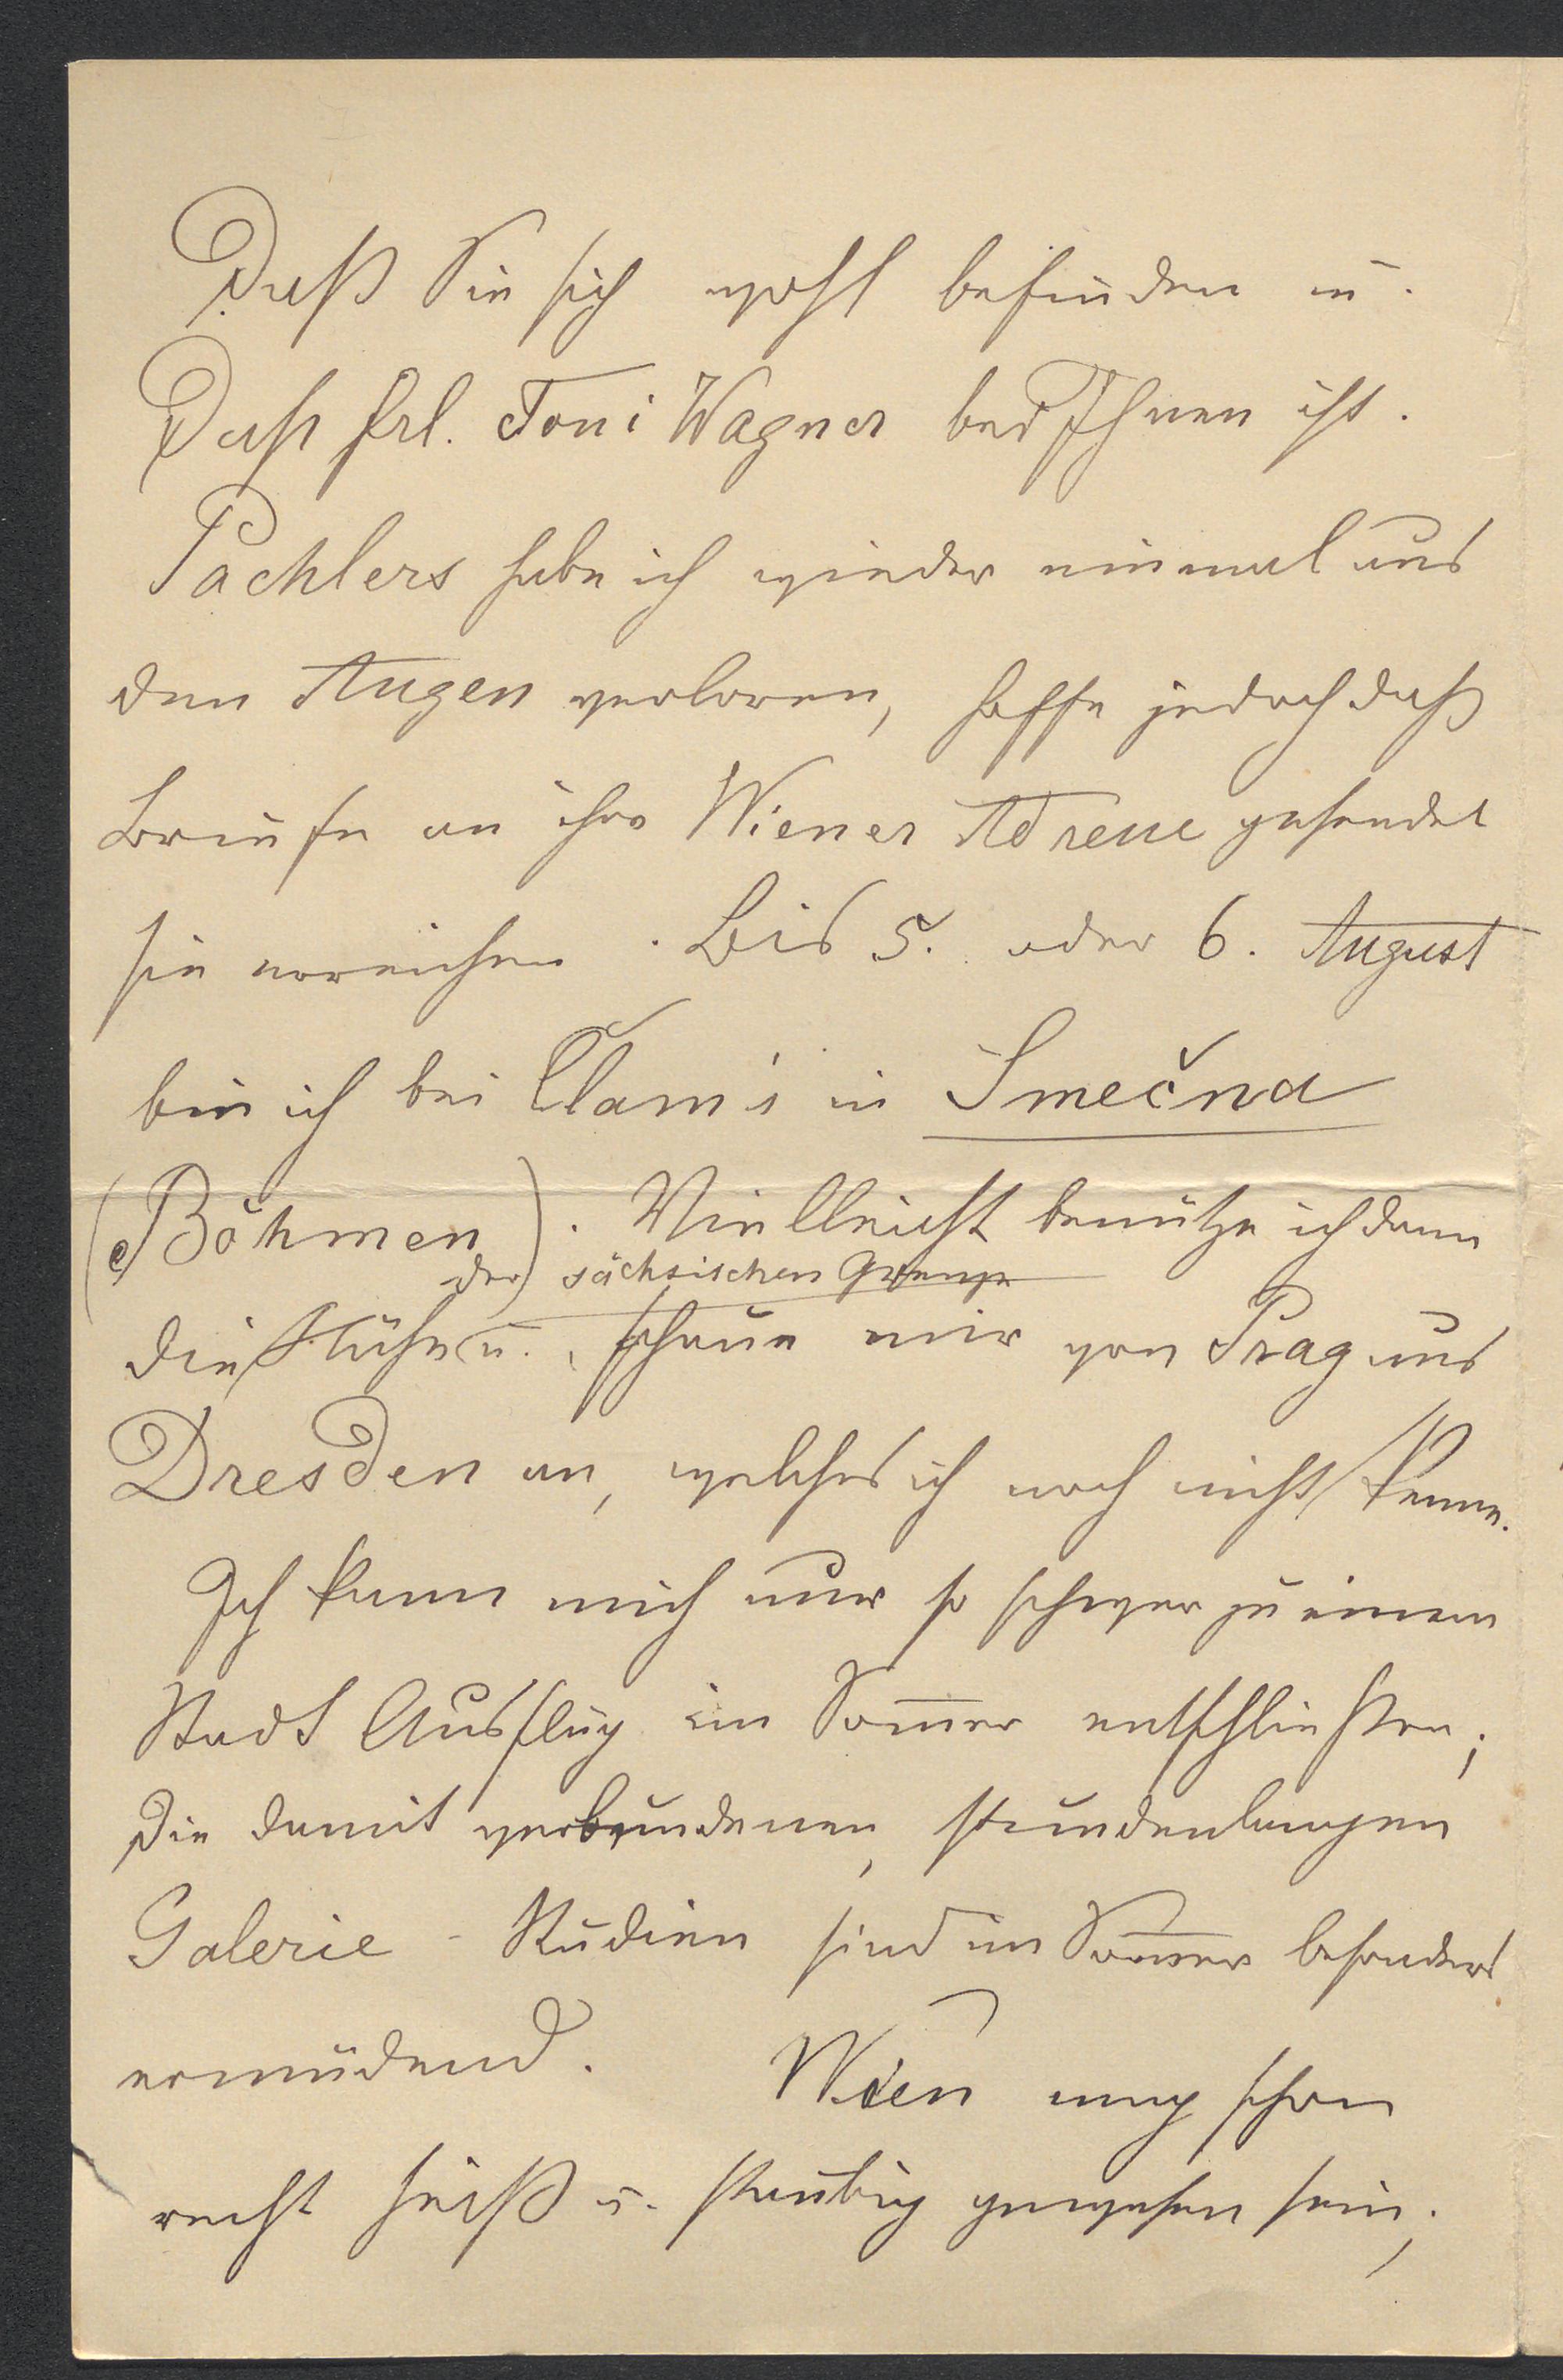 Daß Sie sich wohl befinden u.
Daß Frl. Toni Wagner bei Ihnen ist.
Pachlers habe ich wieder einmal aus
den Augen verloren, hoffe jedoch daß
Briefe an ihre Wiener Adresse gesendet
sie erreichen. Bis 5. oder 6. August
bin ich bei Clam's in Smečna
(Böhmen). Vielleicht benütze ich dann
der sächsischen Grenze
die Nähe u. schaue mir von Prag aus
Dresden an, welches ich noch nicht kenne.
Ich kann mich nur so schwer zu einem
Stadt Ausflug im Som̅er entschließen;
Die damit verbundenen, stundenlangen
Galerie - Studien sind im Som̅er besonders
ermüdend. Wien mag schon
recht heiß u. staubig gewesen sein;